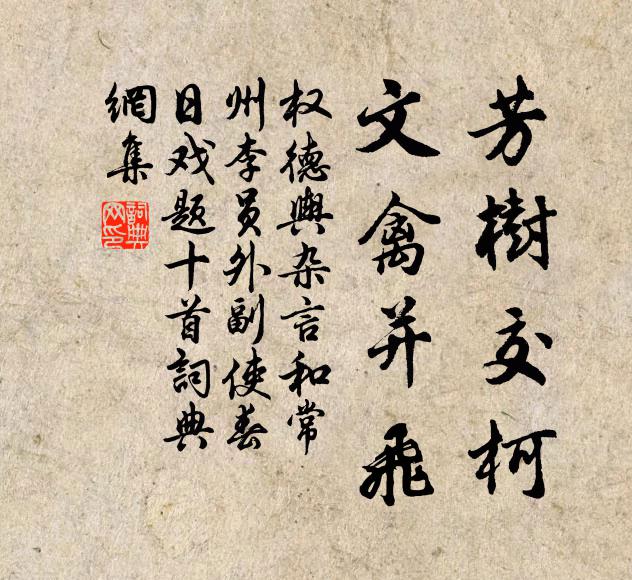 芳樹交柯
文禽并飛
权德輿杂言和常
州李员外副使春
日戏题十首詞典
網集
詞典網印